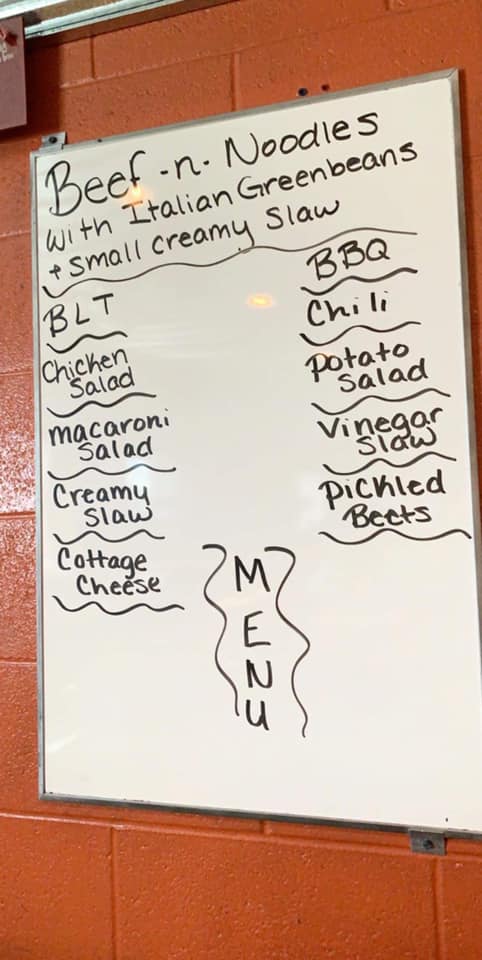 Beef -n- Noodles
with Italian Greenbeans
+ small creamy Slaw
BLT
Chicken
Salad
macaroni
Salad
Creamy
Slaw
Cottage
Cheese
BBQ
Chili
Potato
Salad
Vinegar
Slaw
Pickled
Beets
M
E
N
U